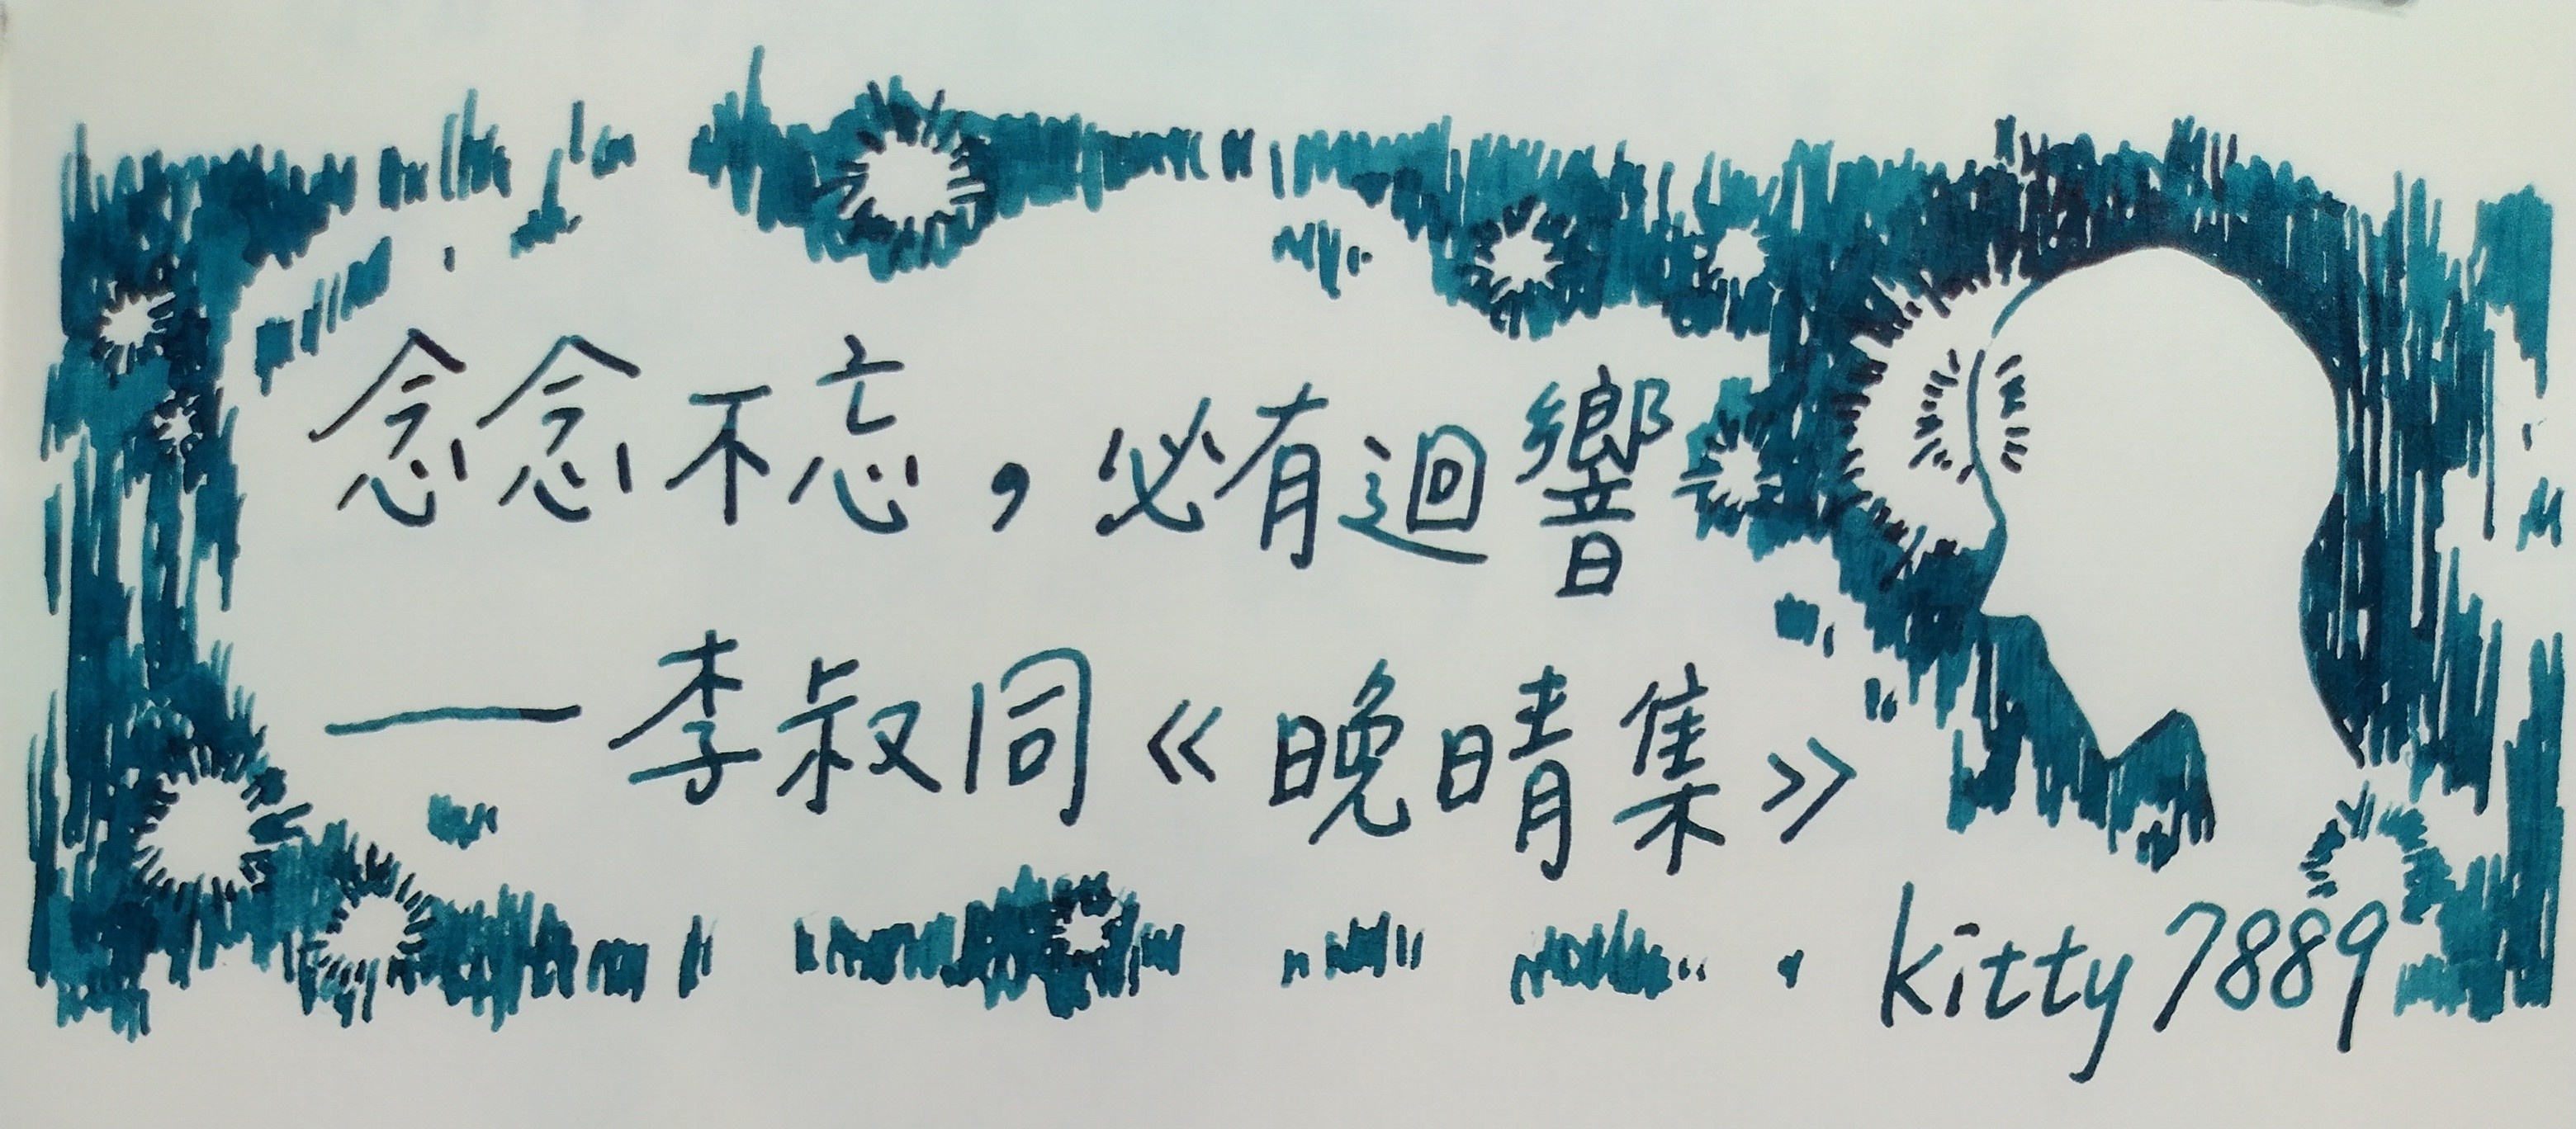 念念不忘，必有迴響
——李叔同《晚晴集》
kitty7889